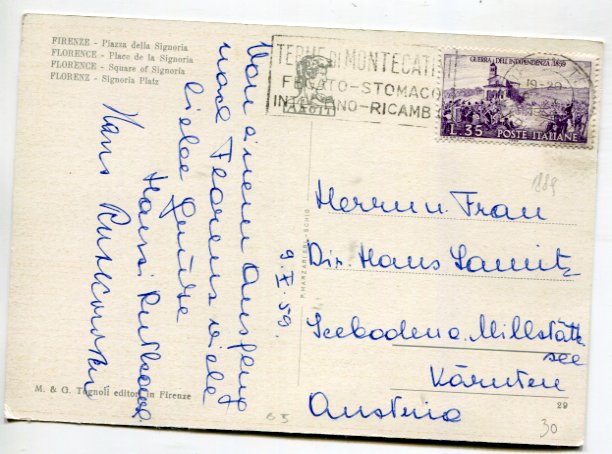 FIRENZE - Piazza della Signoria
FLORENCE - Place de la Signoria
FLORENCE - Square of Signoria
FLORENZ - Signoria Platz
TERME DI MONTECATI
FEGATO-STOMACO
INTESTINO-RICAMB
GUERRA DELL'INDIPENDENZA 1859
19-20
L. 35 POSTE ITALIANE
189
Von einem Ausflug
nach Florenz viele
liebe Grüße
Hansi
Hans
9.X.59.
P. MARZARI SRL - SCHIO
Herrn u. Frau
Dir. Hans Samitz
Seeboden a. Millstätt
see
Kärnten
Austria
M. & G. Tognoli editori in Firenze
29
30